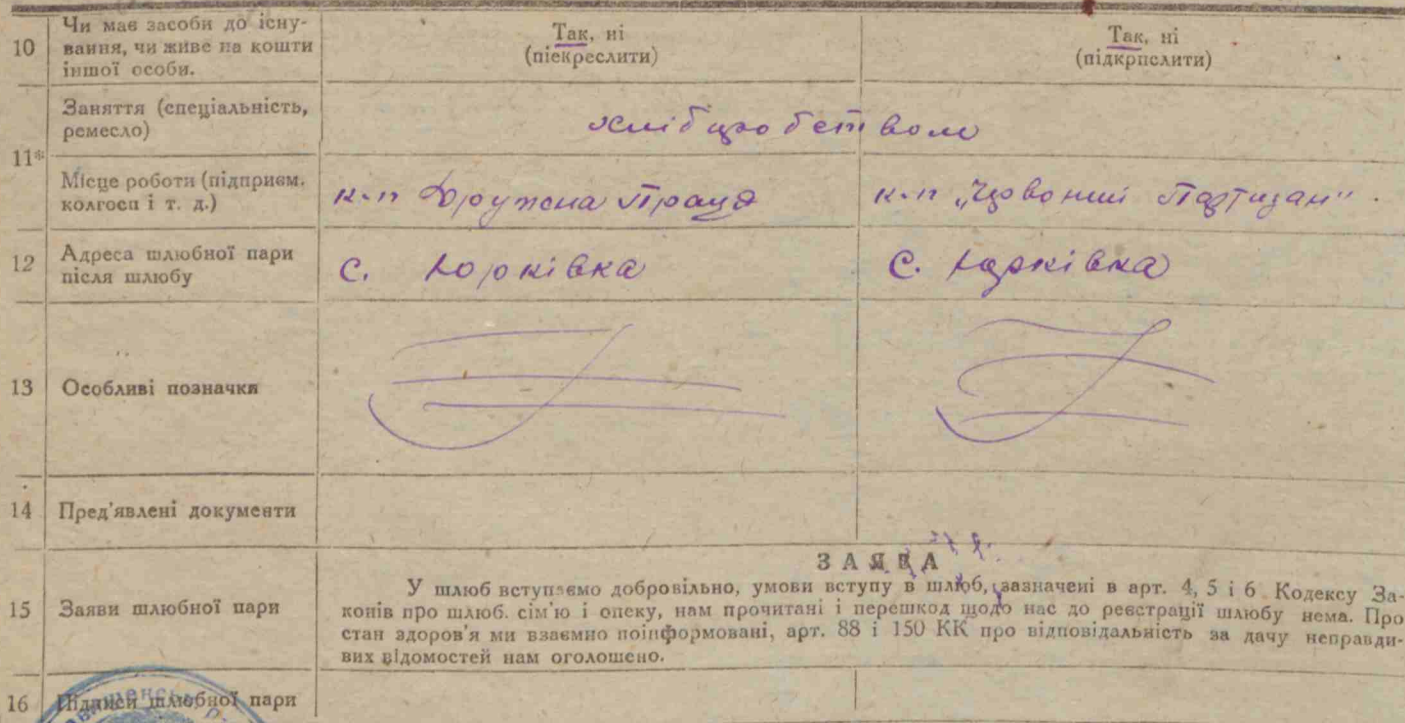 10 Чи має засоби до існу-
вання, чи живе на кошти
іншої особи.
Так, ні
(піекреслити)
Так, ні
(підкрпслити)
11*
Заняття (спеціальність,
ремесло)
хлібцробством
Місце роботи (підприєм.
колгосп і т. д.)
к-п Дружна Праця
к-п „Чрвоний Партизан"
12 Адреса шлюбної пари
після шлюбу
с. Юрківка
с. Юрківка
13 Особливі позначки
14 Пред'явлені документи
15 Заяви шлюбної пари
ЗАЯВА
У шлюб вступаємо добровільно, умови вступу в шлюб, зазначені в арт. 4, 5 і 6 Кодексу За-
конів про шлюб. сім'ю і опеку, нам прочитані і перешкод щодо нас до реєстрації шлюбу нема. Про
стан здоров'я ми взаємно поінформовані, арт. 88 і 150 КК про відповідальність за дачу неправди-
вих відомостей нам оголошено.
16 Підписи шлюбної пари